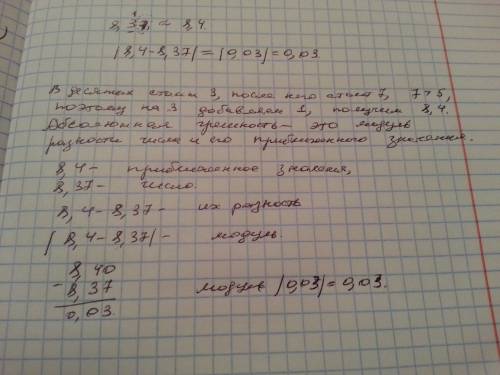 8,37 ≈ 8,4.
|8,4-8,37| = |0,03| = 0,03.
В десятых стоит 3, после него стоит 7, 7>5,
поэтому на 3 добавляем 1, получим 8,4.
Абсолютная грешность - это модуль
разности числа и его приближенного значения.
8,4 - приближенное значения,
8,37 - число.
8,4 - 8,37 - их разность
|8,4 - 8,37| - модуль.
8,40
- 8,37
0,03.
модуль |0,03| = 0,03.